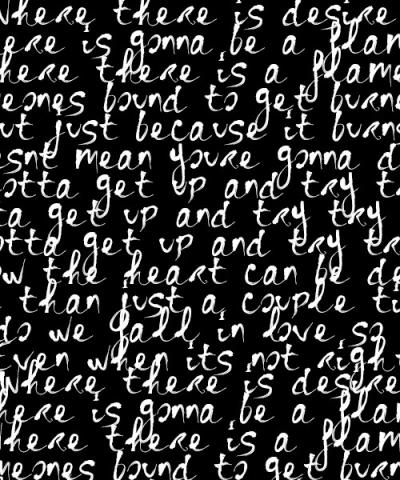 Where there is desire
ere is gonna be a flam
here there is a flame
eones bound to get burne
ut just because it burns
snt mean youre gonna d
otta get up and try tr
ta get up and try try
otta get up and try tr
w the heart can be de
than just a couple ti
do we fall in love so
ven when its not righ
Where there is desire
ere is gonna be a flam
here there is a flam
meones bound to get burn